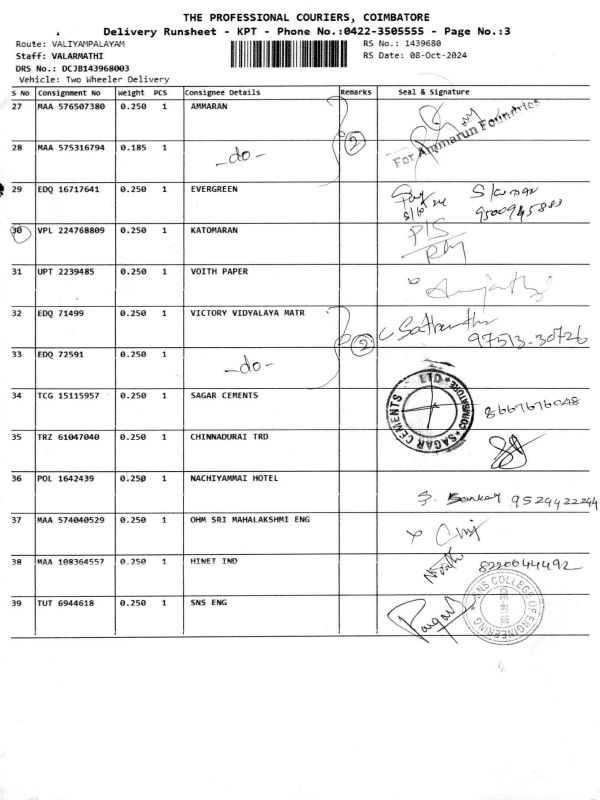 THE PROFESSIONAL COURIERS, COIMBATORE
Delivery Runsheet - KPT - Phone No.:0422-3505555 - Page No.:3
Route: VALIYAMPALAYAM RS No.: 1439680
Staff: VALARMATHI RS Date: 08-Oct-2024
DRS No.: DCJB143968003
Vehicle: Two Wheeler Delivery
S No Consignment No Weight PCS Consignee Details Remarks Seal & Signature
27 MAA 576507380 0.250 1 AMMARAN
2 For Ammarun Foundries
28 MAA 575316794 0.185 1 -do-
29 EDQ 16717641 0.250 1 EVERGREEN
8/10/24 9500945883
30 VPL 224768809 0.250 1 KATOMARAN
31 UPT 2239485 0.250 1 VOITH PAPER
32 EDQ 71499 0.250 1 VICTORY VIDYALAYA MATR
2 97513-30726
33 EDQ 72591 0.250 1 -do-
34 TCG 15115957 0.250 1 SAGAR CEMENTS
SAGAR CEMENTS LTD 8667676048
35 TRZ 61047040 0.250 1 CHINNADURAI TRD
36 POL 1642439 0.250 1 NACHIYAMMAI HOTEL
S. Sankar 9524422244
37 MAA 574040529 0.250 1 OHM SRI MAHALAKSHMI ENG
38 MAA 108364557 0.250 1 HINET IND
8220044492
39 TUT 6944618 0.250 1 SNS ENG
SNS COLLEGE OF ENGINEERING